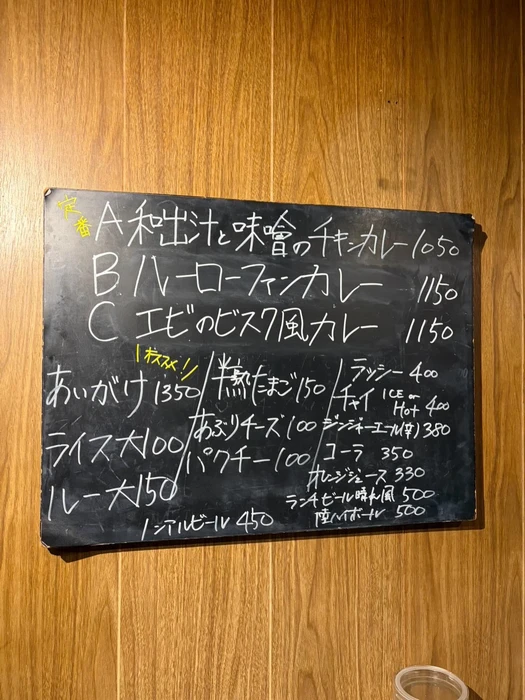 定番
A 和出汁と味噌のチキンカレー 1050
B ルーローファンカレー 1150
C エビのビスク風カレー 1150
\オススメ!/
あいがけ 1350
ライス大 100
ルー大 150
半熟たまご 150
あぶりチーズ 100
パクチー 100
ラッシー 400
チャイ ICE or Hot 400
ジンジャーエール(辛) 380
コーラ 350
オレンジジュース 330
ランチビール 晴れ風 500
陸ハイボール 500
ノンアルビール 450